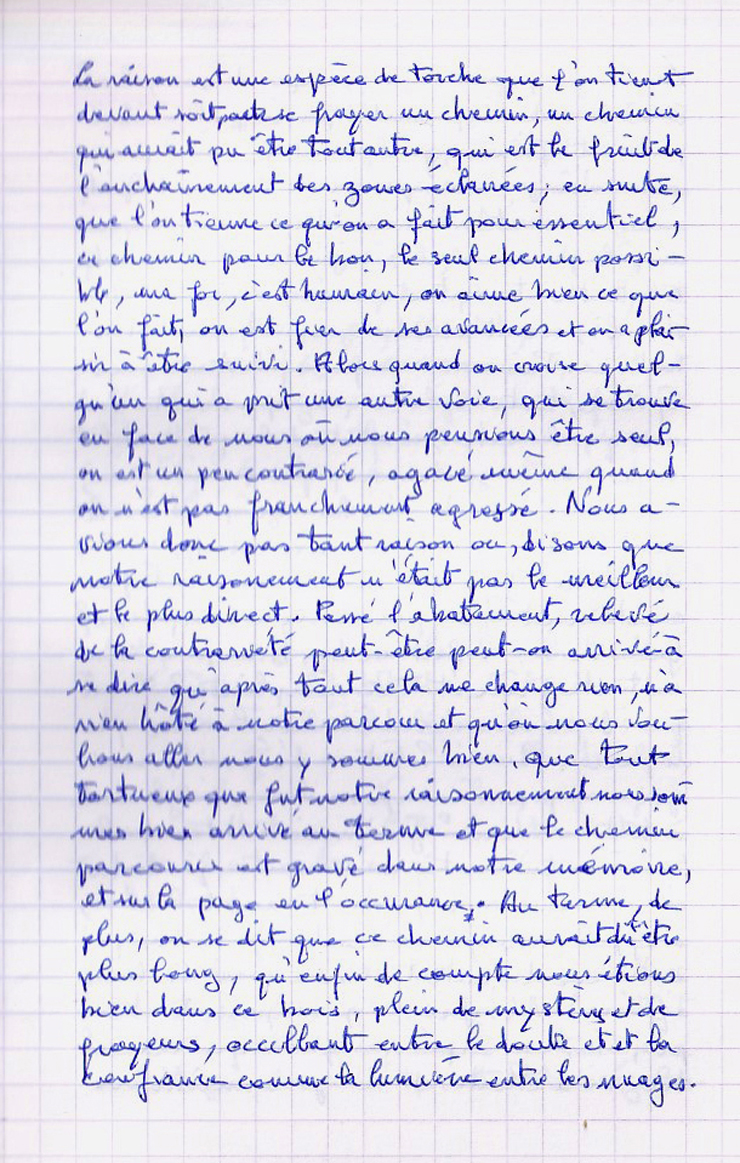 La raison est une espèce de torche que l'on tient
devant soit, pour se frayer un chemin, un chemin
qui aurait pu être tout autre, qui est le fruit de
l'enchaînement des zones éclairées; en suite,
que l'on tienne ce qu'on a fait pour essentiel,
ce chemin pour le bon, le seul chemin possi-
ble, ma foi, c'est humain, on aime bien ce que
l'on fait, on est fier de ses avancées et on a plai-
sir à être suivi. Alors quand on croise quel-
qu'un qui a prit une autre voie, qui se trouve
en face de nous où nous pensions être seul,
on est un peu contrarié, agacé même quand
on n'est pas franchement agressé. Nous a-
vions donc pas tant raison ou, disons que
notre raisonement n'était pas le meilleur
et le plus direct. Passé l'abatement, relevé
de la contrariété peut-être peut-on arrivé à
se dire qu'après tout cela ne change rien, n'a
rien hôté à notre parcour et qu'où nous vou-
lions aller nous y sommes bien, que tout
tortueux que fut notre raisonnement nous som
mes bien arrivé au terme et que le chemin
parcouru est gravé dans notre mémoire,
et sur la page en l'occurance. Au terme, de
plus, on se dit que ce chemin aurait dû être
plus long, qu'enfin de compte nous étions
bien dans ce bois, plein de mystères et de
frayeurs, occillant entre le doute et et la
confiance comme la lumière entre les nuages.